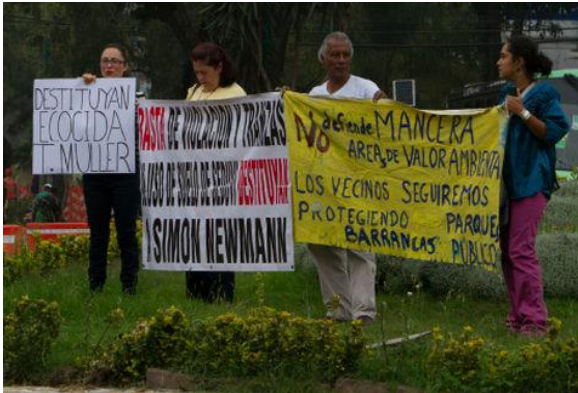 DESTITUYAN
ECOCIDA
T. MULLER
BASTA DE VIOLACION Y TRANZAS
USO DE SUELO DE SEDUVI DESTITUYAN
A SIMON NEWMANN
No defiende MANCERA
AREAS DE VALOR AMBIENTAL
LOS VECINOS SEGUIREMOS
PROTEGIENDO PARQUES
BARRANCAS PÚBLICO